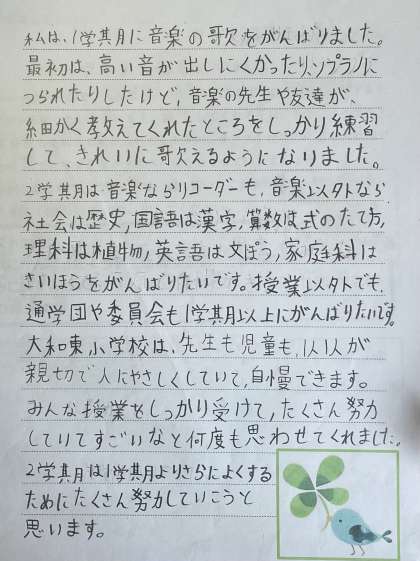 私は、1学期に音楽の歌をがんばりました。
最初は、高い音が出しにくかったり、ソプラノに
つられたりしたけど、音楽の先生や友達が、
細かく教えてくれたところをしっかり練習
して、きれいに歌えるようになりました。
2学期は音楽ならリコーダーも、音楽以外なら
社会は歴史、国語は漢字、算数は式のたて方、
理科は植物、英語は文ぽう、家庭科は
さいほうをがんばりたいです。授業以外でも、
通学団や委員会も1学期以上にがんばりたいです。
大和東小学校は、先生も児童も、1人1人が
親切で人にやさしくしていて、自慢できます。
みんな授業をしっかり受けて、たくさん努力
していてすごいなと何度も思わせてくれました。
2学期は1学期よりさらによくする
ためにたくさん努力していこうと
思います。